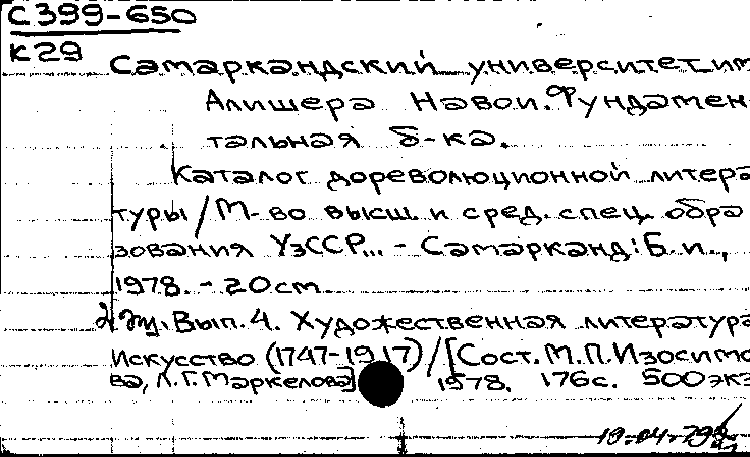 С399-650
К29
Самаркандский университет им
Алишера Навои. Фундамен
тальная б-ка.
Каталог дореволюционной литера
туры / М-во высш. и сред. спец. обра
зования УзССР... - Самарканд: Б. и.,
1978. - 20 см.
Вып. 4. Художественная литература
Искусство (1747-1917) / [Сост. М.П. Изосимо
ва, Л.Г. Маркелова] 1978. 176 с. 500 экз